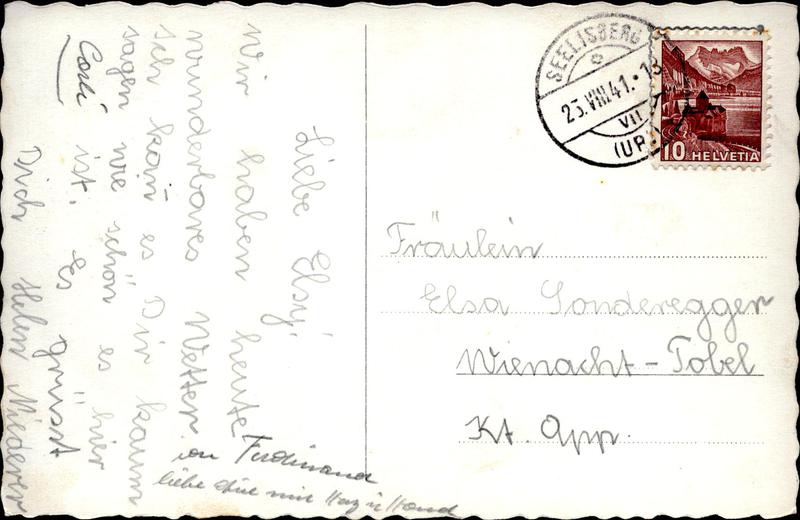 Liebe Elsy!
Wir haben heute
wunderbares Wetter
Ich kan̄ es Dir kaum
sagen wie schön es hier
ist. Es grüsst
Dich Heleni Niederer
von Ferdinand
liebe mit Herz u Hand
SEELISBERG
23.VIII.41.-18
VII
(URI)
10 HELVETIA
Fräulein
Elsa Sonderegger
Wienacht-Tobel
Kt. App.